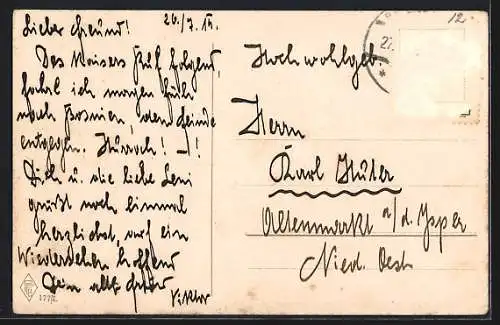 26./7. 14.
Lieber Freund!
Des Kaisers Ruf folgend,
fahrt ich morgen früh
nach Bosnien, dem Feinde
entgegen. Hurrah! – !
Dich u. die liebe Leni
grüßt noch einmal
herzlichst, auf ein
Wiedersehen hoffend
Dein alter
Viktor
Hochwohlgeb.
Herrn
Karl Huter
Altenmarkt a/d. Ysper
Nied. Oest
12
27.